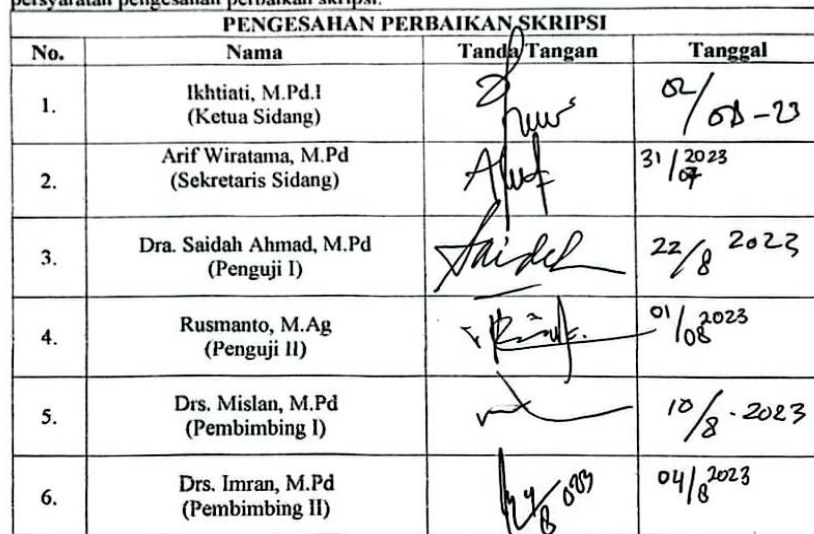 persyaratan pengesahan perbaikan skripsi.
PENGESAHAN PERBAIKAN SKRIPSI
No. Nama Tanda Tangan Tanggal
1. Ikhtiati, M.Pd.I
(Ketua Sidang)
02/08-23
2. Arif Wiratama, M.Pd
(Sekretaris Sidang)
31/07 2023
3. Dra. Saidah Ahmad, M.Pd
(Penguji I)
Saidah
22/8 2023
4. Rusmanto, M.Ag
(Penguji II)
01/08 2023
5. Drs. Mislan, M.Pd
(Pembimbing I)
10/8 . 2023
6. Drs. Imran, M.Pd
(Pembimbing II)
04/8 2023